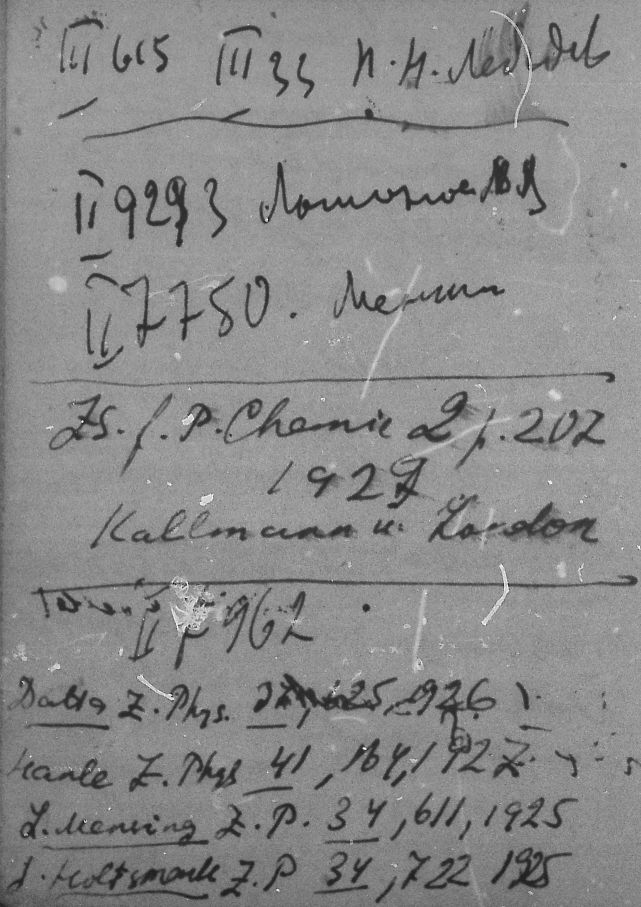 III 615 III 33 П. Н. Лебедев
II 9293
II 7750.
Zs. f. P. Chemie 2 p. 207
1927
Kallmann u. London
II 962
Datta Z. Phys. 1926
Hanle Z. Phys 41, 164, 1927
L. Mensing Z. P. 34, 611, 1925
J. Holtsmark Z. P 34, 722 1925